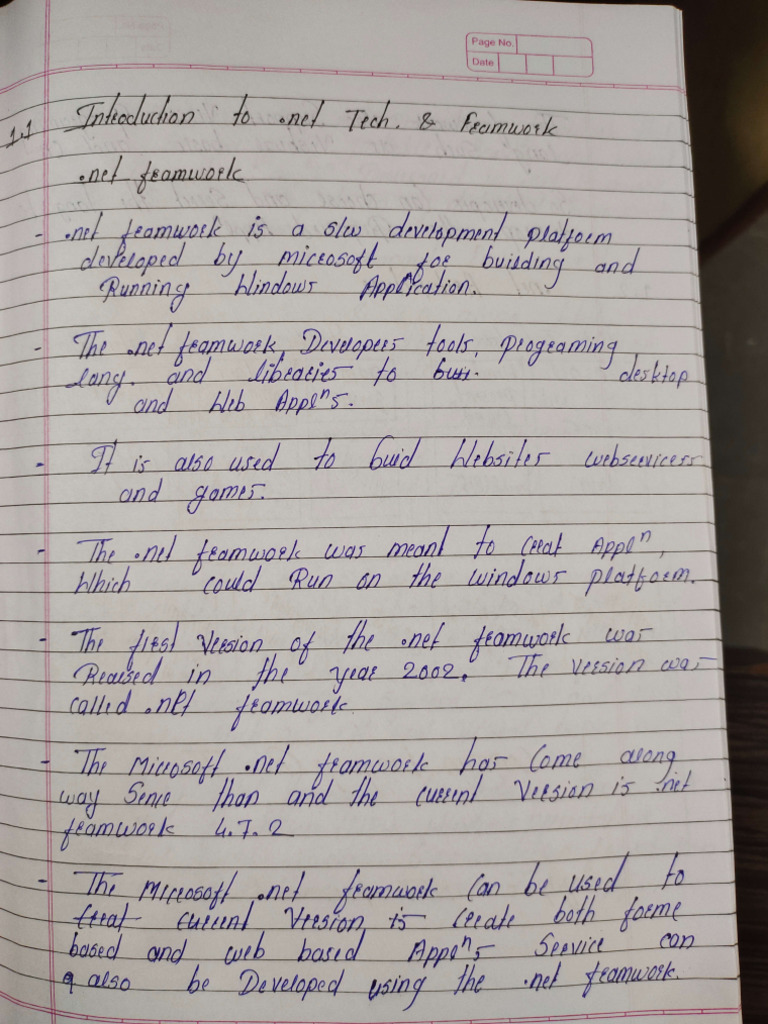 Page No.
Date
1.1 Introduction to .net Tech. & Feamwork
.net feamwork
- .net feamwork is a s/w development platform
developed by microsoft for building and
Running Windows Application.
- The .net feamwork, Developers tools, programing
lang. and libraries to desktop
and Web Applⁿs.
- It is also used to buid Websites webservicess
and games.
- The .net feamwork was meant to Creat Applⁿ,
Which could Run on the windows platform.
- The first Version of the .net feamwork was
Reaised in the year 2002. The version was
called .net feamwork
- The Microsoft .net feamwork has Come along
way Sence than and the current Version is .net
feamwork 4.7.2
- The Microsoft .net feamwork Can be used to
creat current Version is create both forme
based and web based Applⁿs Service can
also be Developed using the .net feamwork.